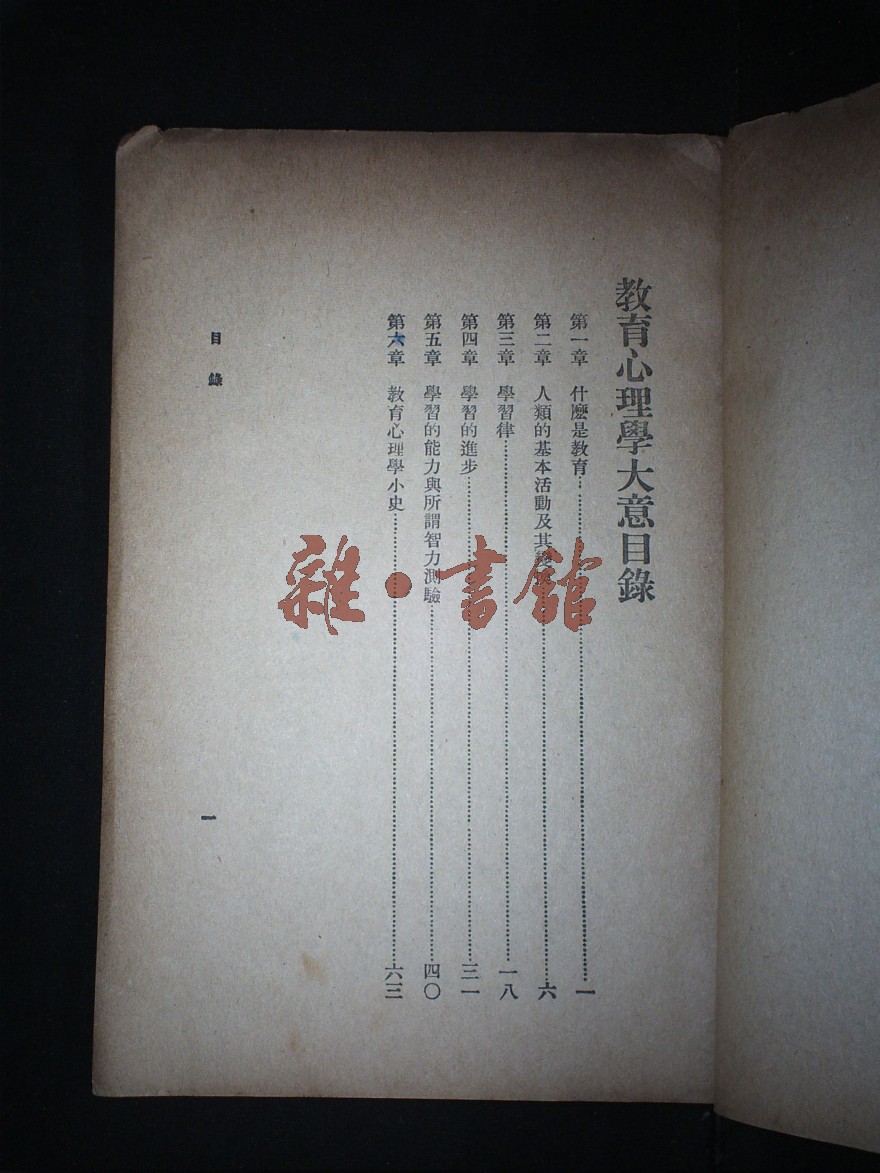 教育心理學大意目錄
第一章 什麼是教育……一
第二章 人類的基本活動及其……六
第三章 學習律……一八
第四章 學習的進步……三一
第五章 學習的能力與所謂智力測驗……四〇
第六章 教育心理學小史……六三
目錄
一
雜·書館